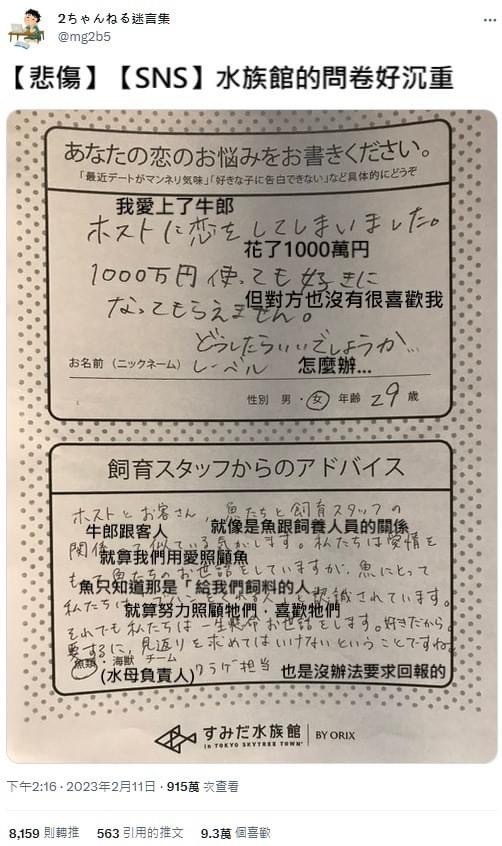 2ちゃんねる迷言集
@mg2b5
【悲傷】【SNS】水族館的問卷好沉重
あなたの恋のお悩みをお書きください。
「最近デートがマンネリ気味」「好きな子に告白できない」など具体的にどうぞ
我愛上了牛郎
ホストに恋をしてしまいました。
花了1000萬円
1000万円使っても好きに
但對方也沒有很喜歡我
なってもらえません。
どうしたらいいでしょうか…
お名前（ニックネーム） レーベル 怎麼辦...
性別 男・女 年齢 29 歳
飼育スタッフからのアドバイス
ホストとお客さん、魚たちと飼育スタッフの
牛郎跟客人 就像是魚跟飼養人員的關係
関係って似ている気がします。私たちは愛情を
就算我們用愛照顧魚
もって魚たちのお世話をしていますが、魚にとって
魚只知道那是「給我們飼料的人」
私たちは 認識されています。
就算努力照顧牠們，喜歡牠們
それでも私たちは一生懸命お世話をします。好きだから。
要するに、見返りを求めてはいけないということですね。
魚類・海獣 チーム クラゲ担当
(水母負責人) 也是沒辦法要求回報的
すみだ水族館 BY ORIX
in TOKYO SKYTREE TOWN
下午2:16 · 2023年2月11日 · 915萬 次查看
8,159 則轉推 563 引用的推文 9.3萬 個喜歡